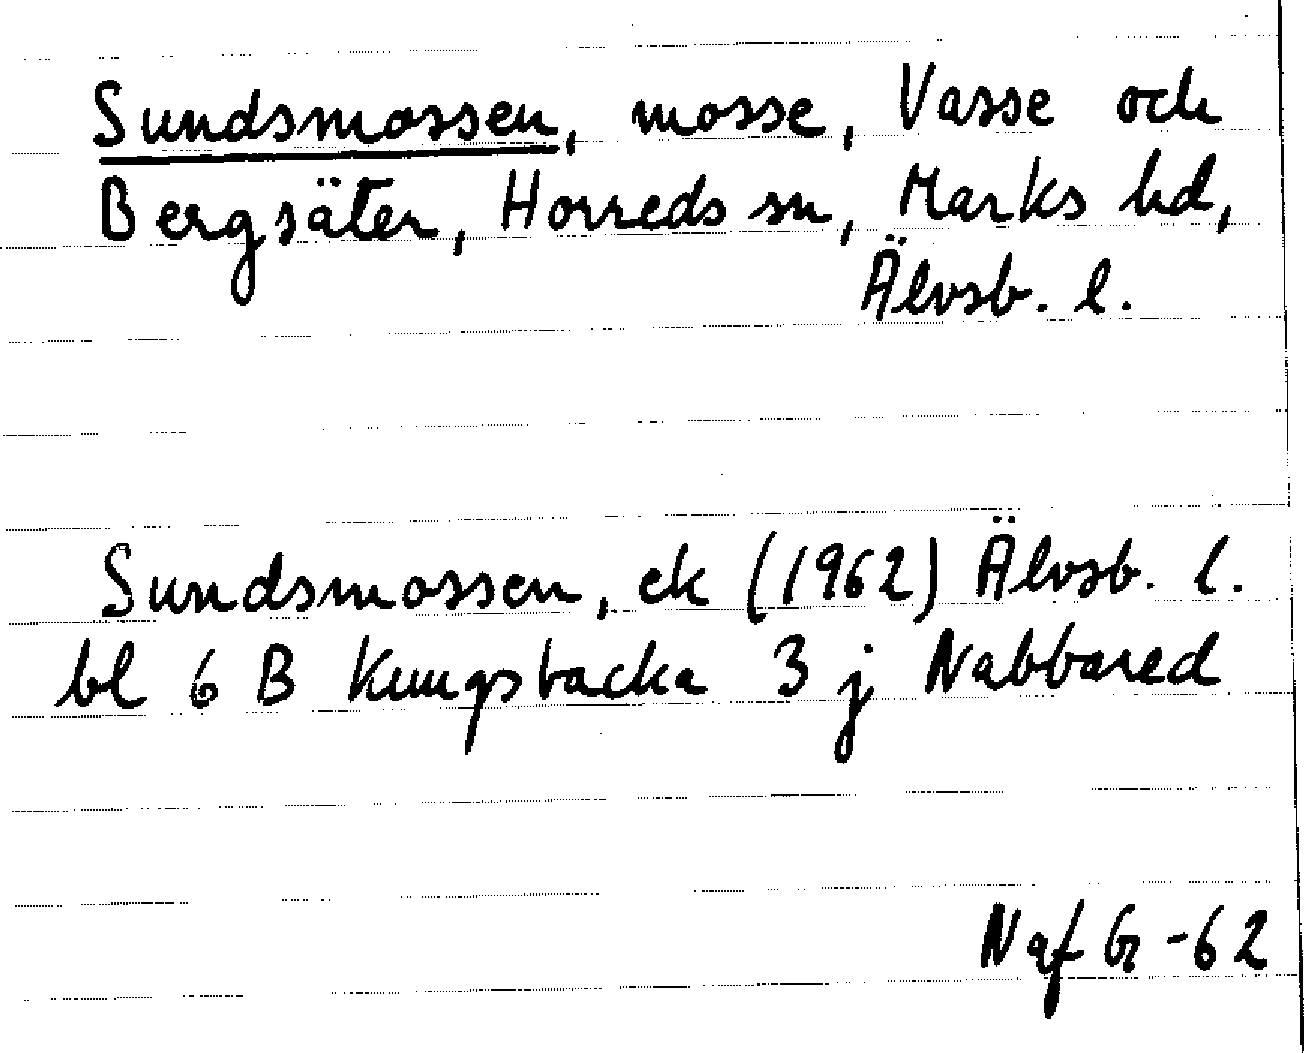 Sundsmossen, mosse, Vasse och
Bergsäter, Horreds sn, Marks hd,
Älvsb. l.
Sundsmossen, ek (1962) Älvsb. l.
bl 6 B Kungsbacka 3 j Nabbared
NafG -62